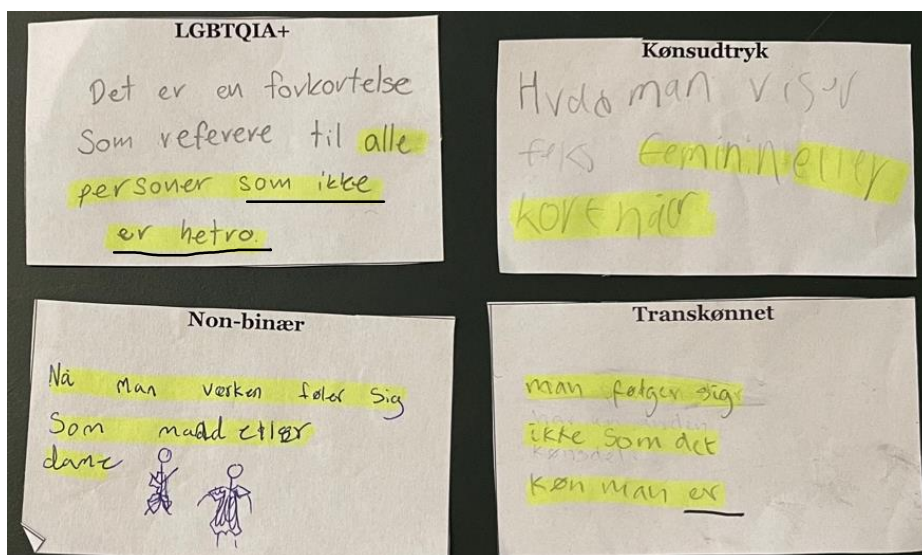 LGBTQIA+
Det er en forkortelse
Som referere til alle
personer som ikke
er hetro.
Kønsudtryk
man viser
feks feminin eller
kort hår
Non-binær
Nå man værken føler Sig
Som madd eller
dame
Transkønnet
man følger sig
ikke som det
køn man er